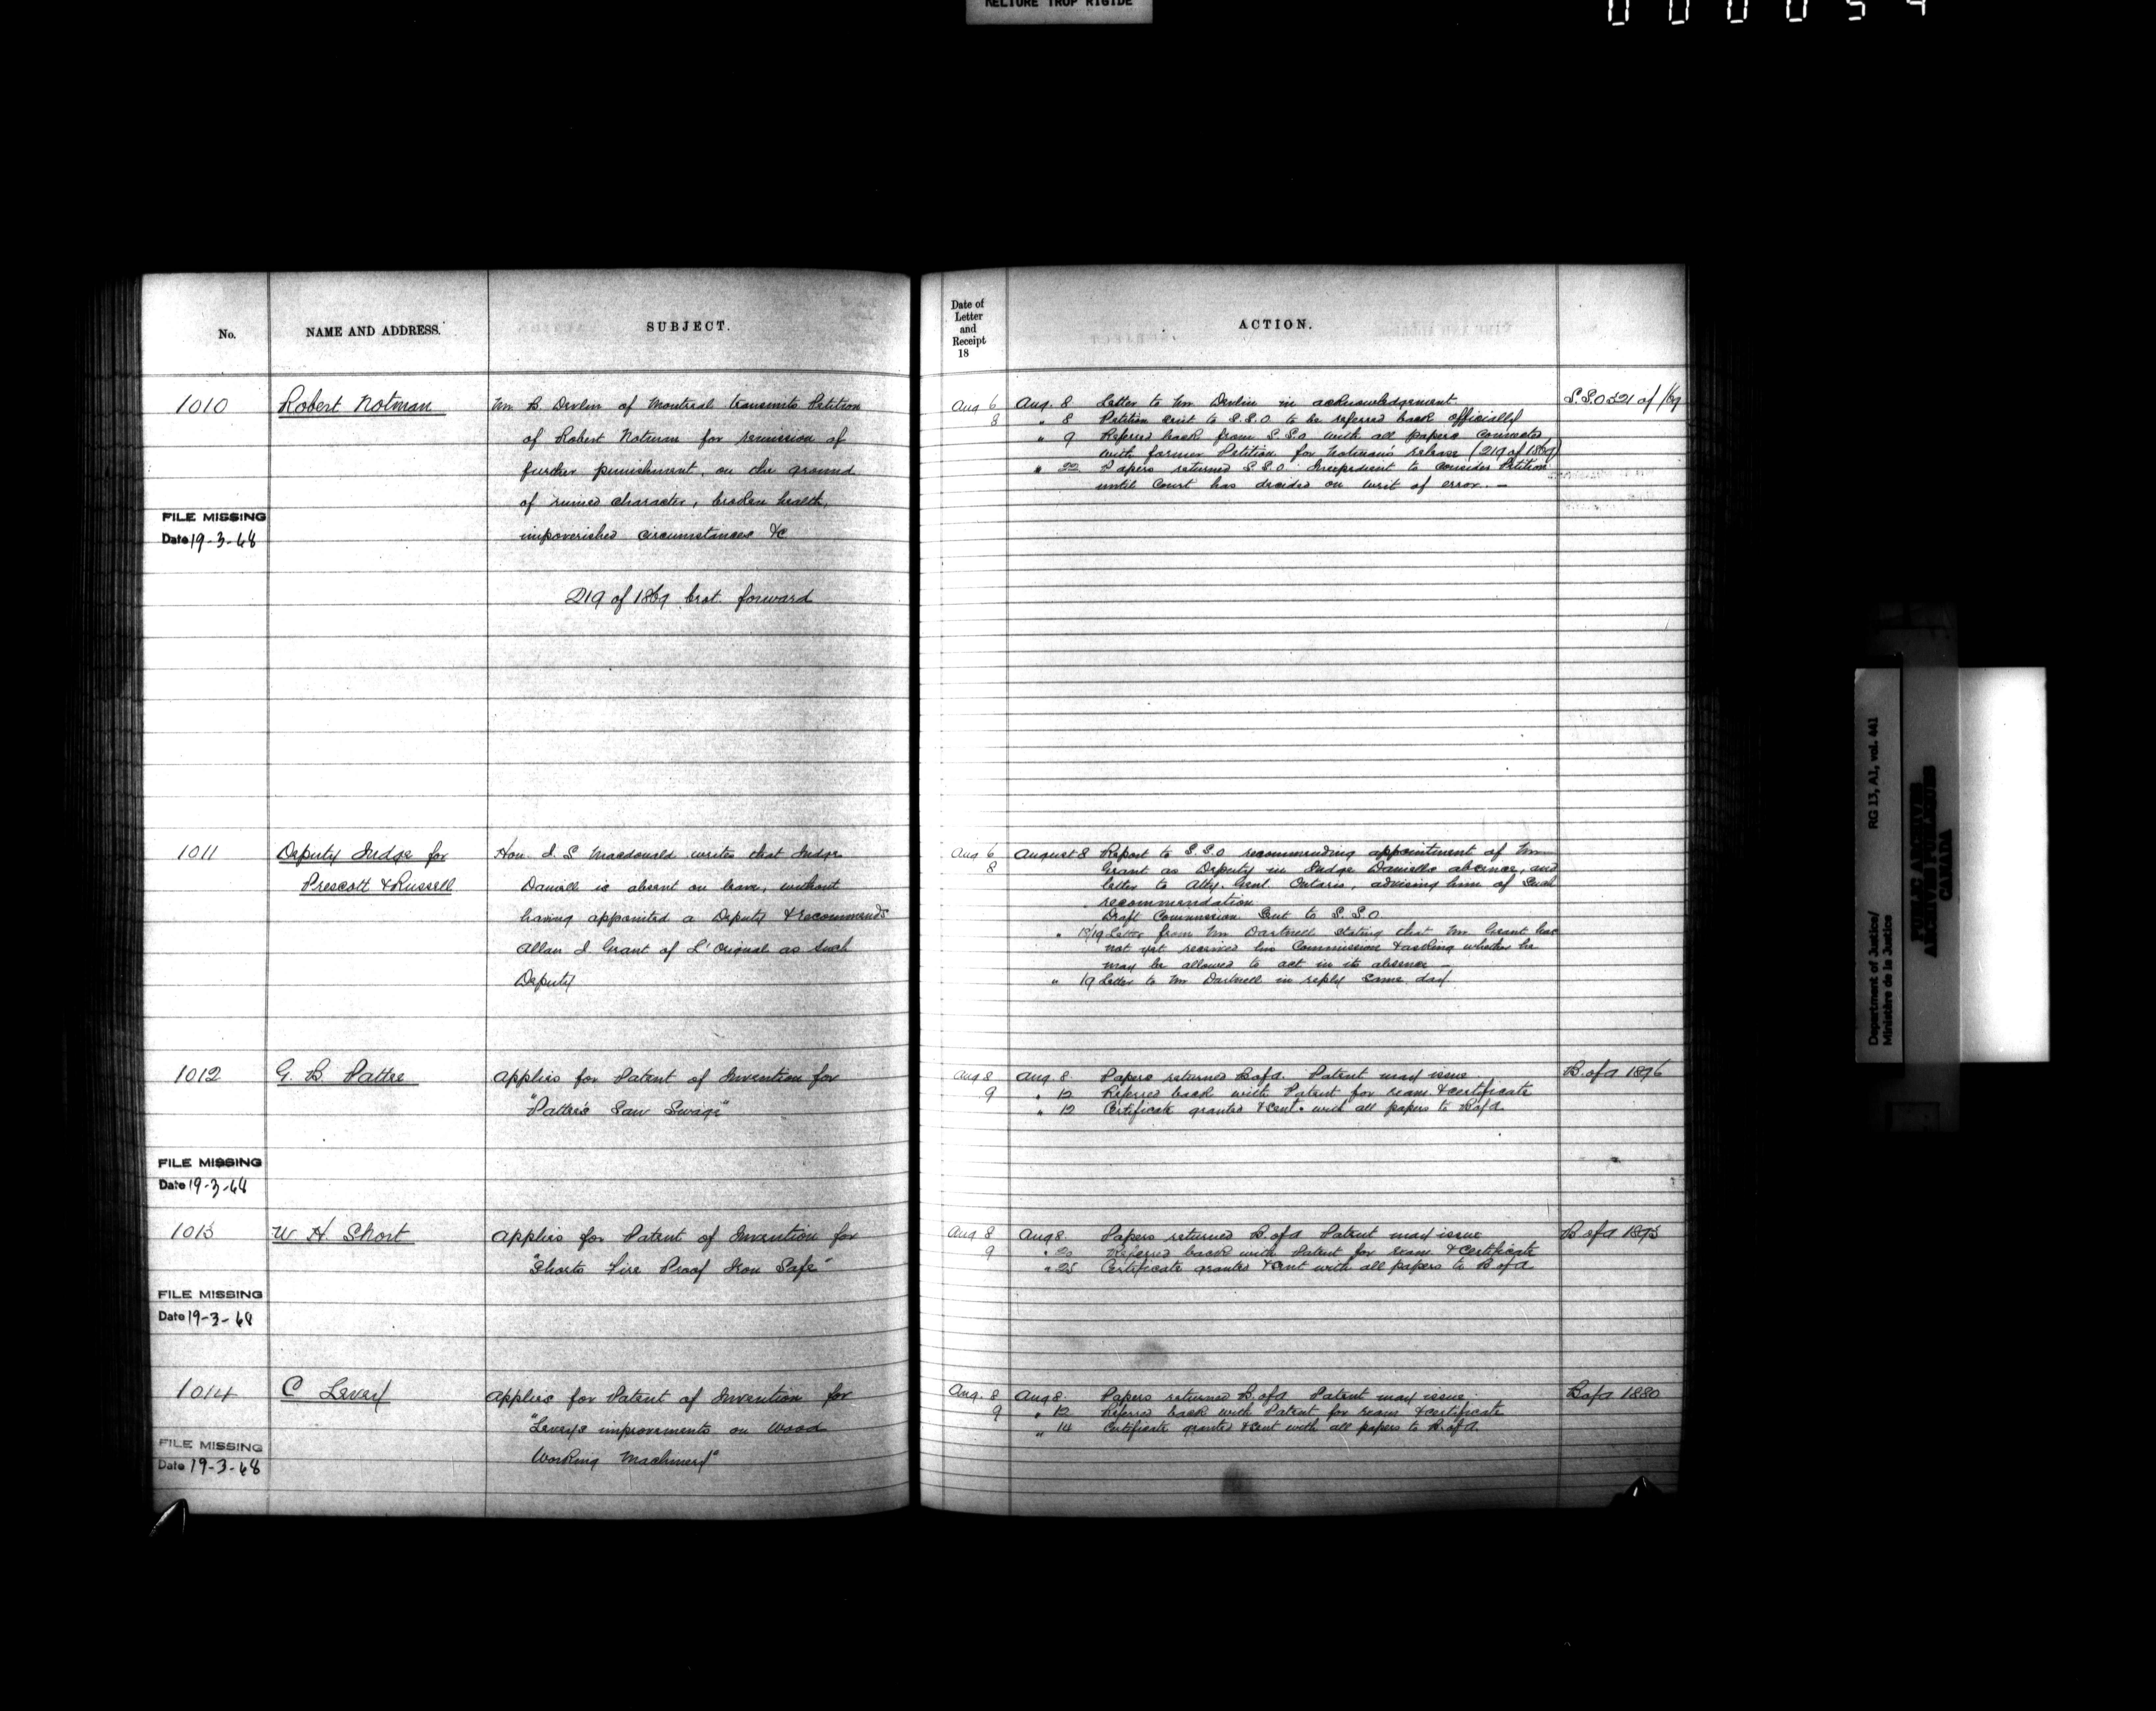 RELIURE TROP RIGIDE
No.
NAME AND ADDRESS.
SUBJECT.
1010
Robert Notman
Mr. B. Devlin of Montreal transmits Petition
of Robert Notman for remission of
further punishment, on the ground
of ruined character, broken health,
impoverished circumstances &c
FILE MISSING
Date 19-3-68
219 of 1869 brot. forward
1011
Deputy Judge for
Prescott & Russell
Hon. J. S Macdonald writes that Judge
Daniell is absent on leave, without
having appointed a Deputy & recommends
Allan J. Grant of L'Orignal as such
Deputy
1012
G. B. Pattee
Applies for Patent of Invention for
"Pattee's Saw Swage"
FILE MISSING
Date 19-3-68
1013
W. H. Short
Applies for Patent of Invention for
"Shorts Fire Proof Iron Safe"
FILE MISSING
Date 19-3-68
1014
C Levey
Applies for Patent of Invention for
"Levey's improvements on Wood
Working Machinery"
FILE MISSING
Date 19-3-68
Date of
Letter
and
Receipt
18
ACTION.
Aug 6
8
Aug. 8 Letter to Mr Devlin in acknowledgement
" 8 Petition sent to S.S.O to be referred back officially
" 9 Referred back from S.S.O. with all papers connected
with former Petition for Notman's release (219 of 1869)
" 22 Papers returned S.S.O. Inexpedient to consider Petition
until Court has decided on writ of error. —
S.S.O 321 of /69
Aug 6
8
August 8 Report to S.S.O recommending appointment of Mr
Grant as Deputy in Judge Daniells absence, and
letter to Atty. Genl. Ontario, advising him of such
recommendation
Draft Commission sent to S.S.O
" 18/19 Letter from Mr Dartnell stating that Mr Grant has
not yet received his Commission & asking whether he
may be allowed to act in its absence —
" 19 Letter to Mr Dartnell in reply same day
Aug 8
9
Aug. 8. Papers returned B of A. Patent may issue
" 12 Referred back with Patent for exam. & certificate
" 12 Certificate granted & sent with all papers to B of A.
B. of A 1896
Aug 8
9
Aug 8. Papers returned B. of A Patent may issue
" 20 Referred back with Patent for exam. & certificate
" 25 Certificate granted & sent with all papers to B of A
B of A 1895
Aug. 8
9
Aug 8. Papers returned B. of A Patent may issue.
" 12 Referred back with Patent for exam. & certificate
" 14 Certificate granted & sent with all papers to B. of A.
B of A 1880
Department of Justice/
Ministère de la Justice
RG 13, A1, vol. 441
PUBLIC ARCHIVES
ARCHIVES PUBLIQUES
CANADA